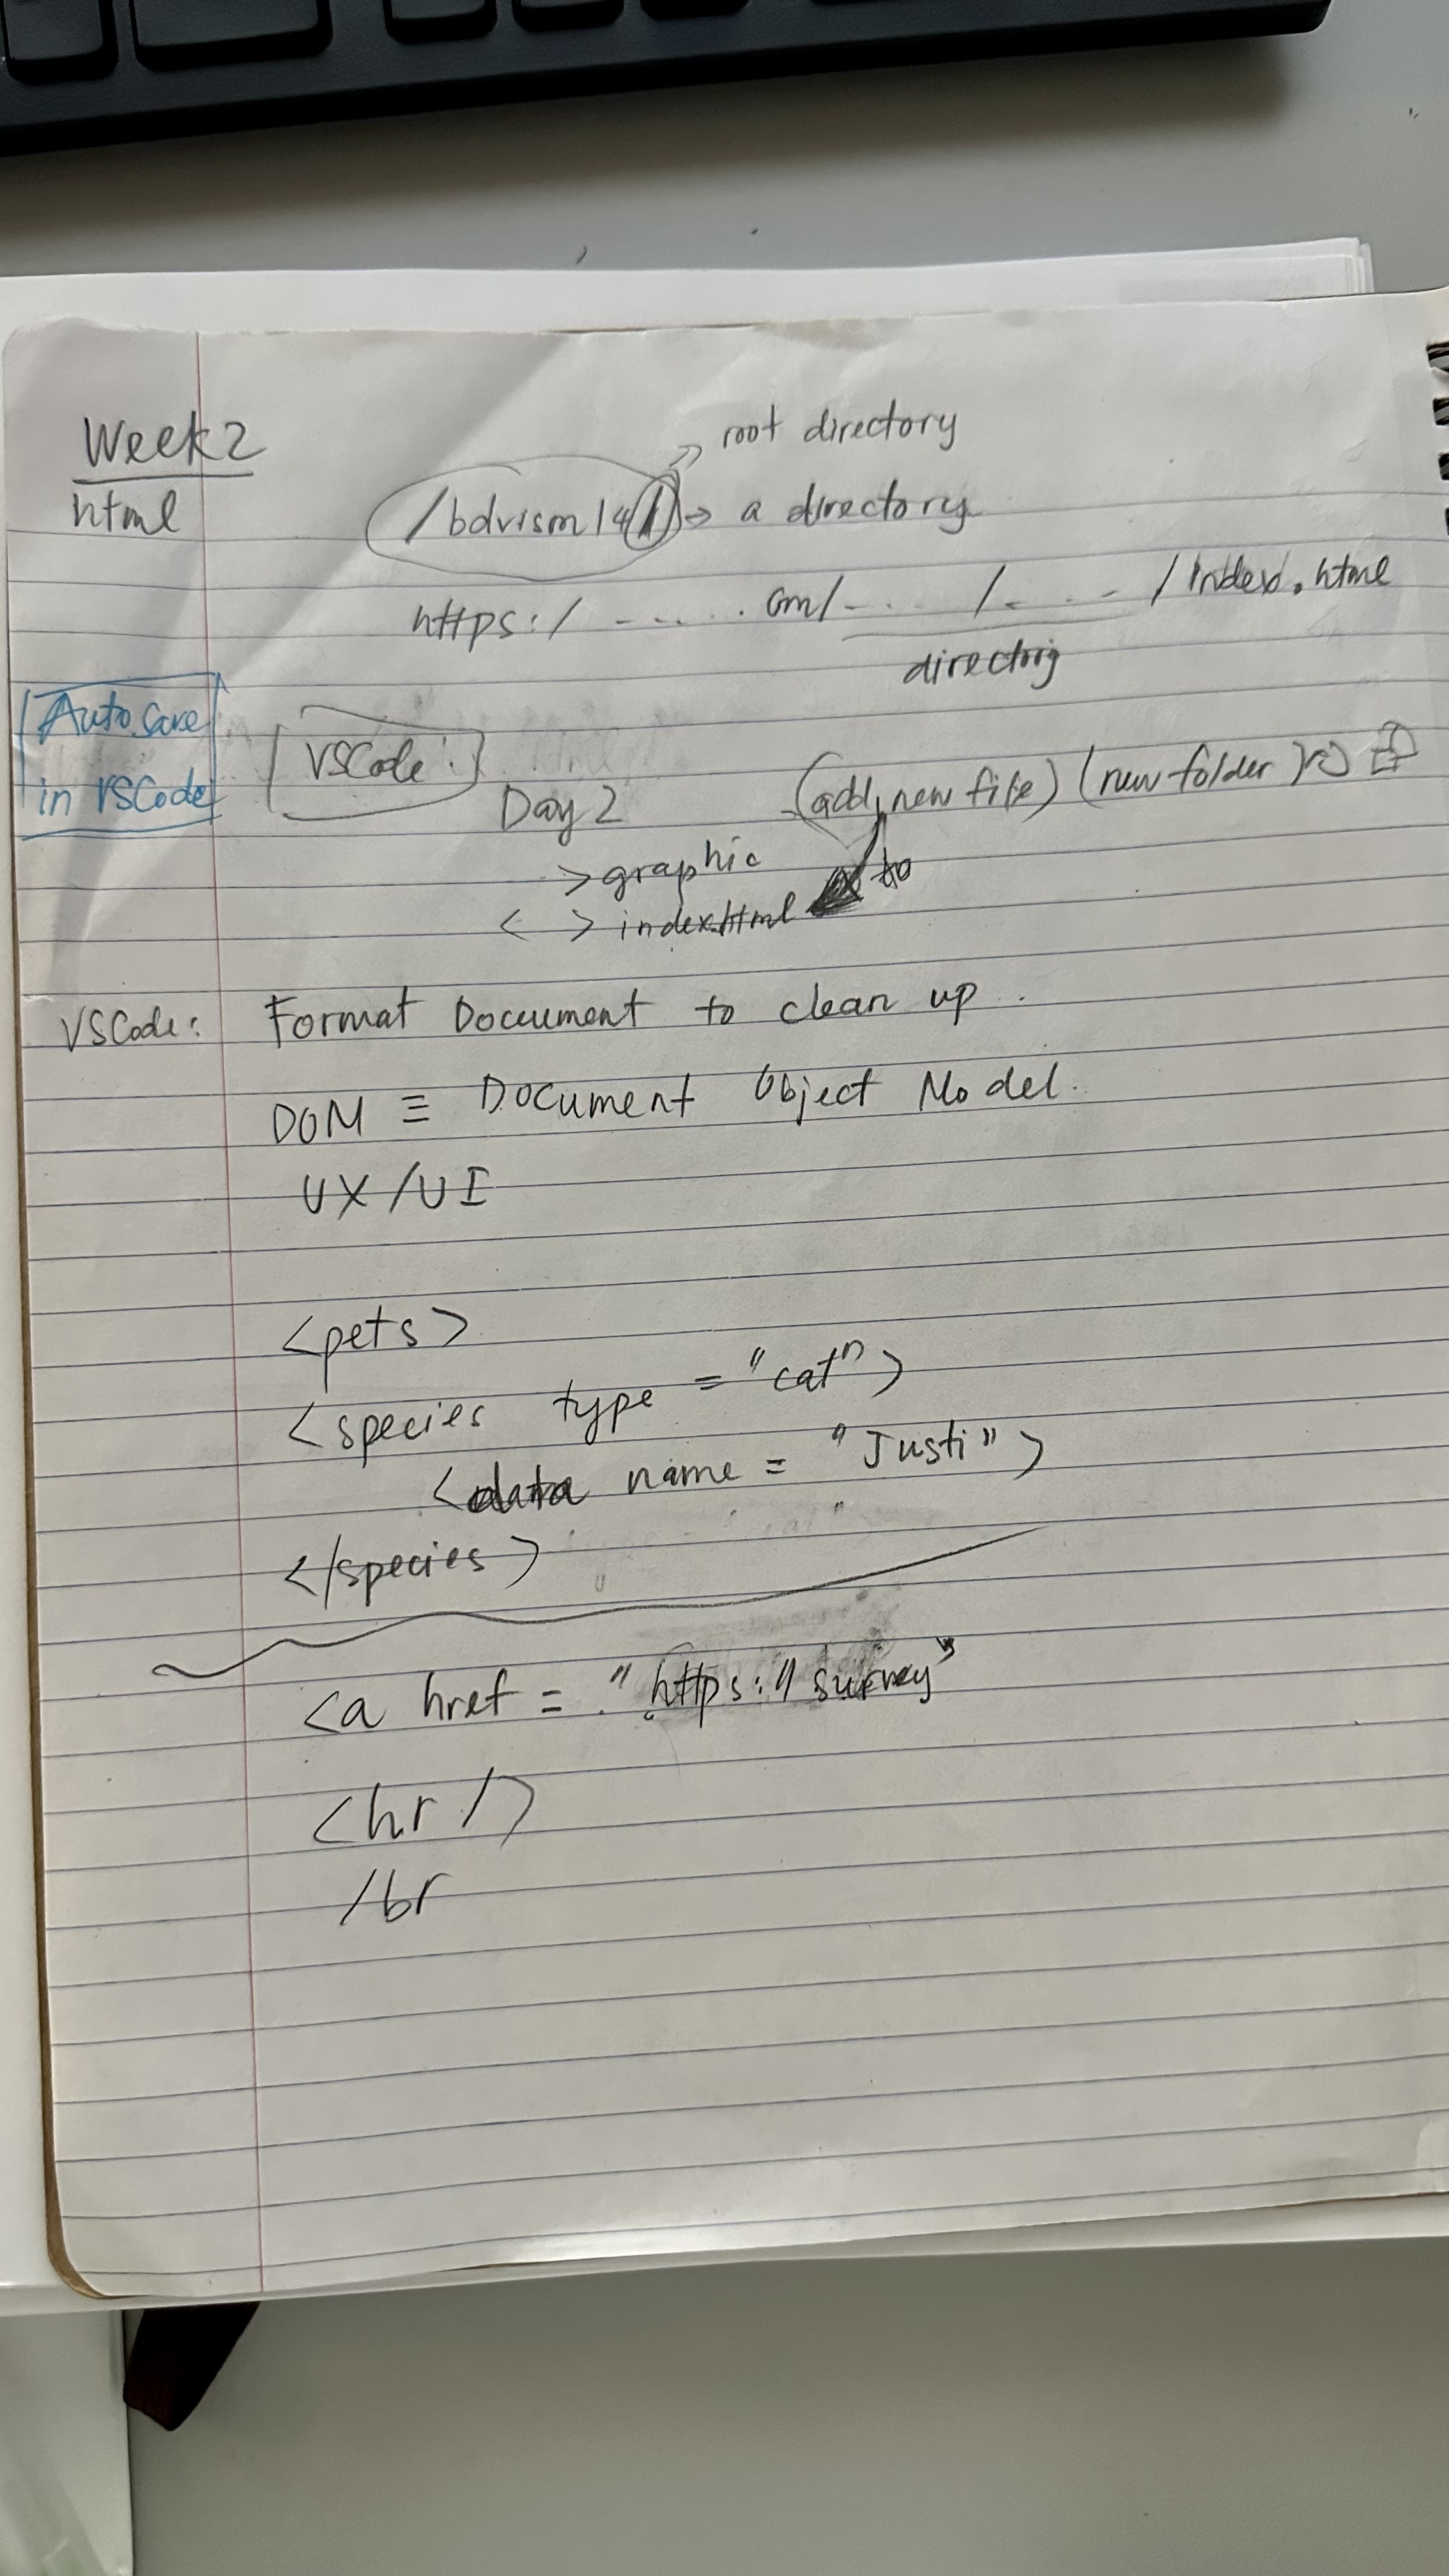 Week 2
html
root directory
/bdvism141/ → a directory
https:/ ------ . com/- . . . . / . . . . - /index.html
directory
Auto Save
in VSCode
VSCode:
Day 2
(add new file) (new folder)
to
> graphic
< > index.html
VSCode: Format Document to clean up .
DOM ≡ Document Object Model.
UX/UI
<pets>
<species type = "cat">
<data name = "Justi">
</species>
<a href = "https:// survey"
<hr />
/br